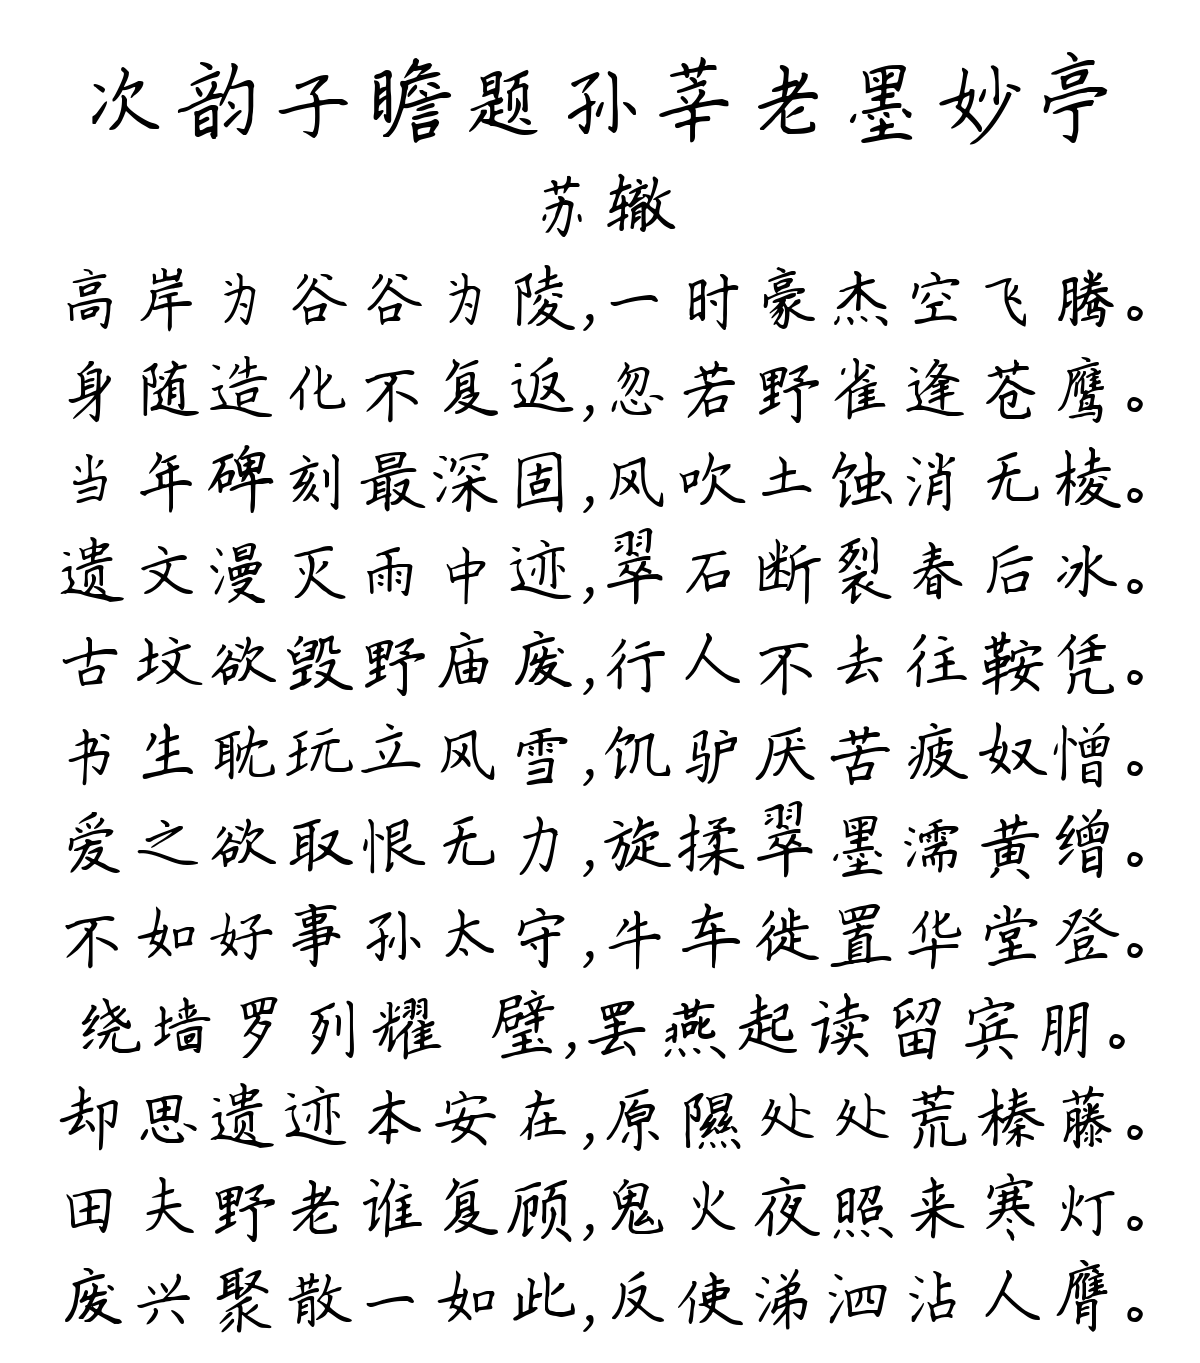 次韵子瞻题孙莘老墨妙亭
苏辙
高岸为谷谷为陵,一时豪杰空飞腾。
身随造化不复返,忽若野雀逢苍鹰。
当年碑刻最深固,风吹土蚀消无棱。
遗文漫灭雨中迹,翠石断裂春后冰。
古坟欲毁野庙废,行人不去往鞍凭。
书生耽玩立风雪,饥驴厌苦疲奴憎。
爱之欲取恨无力,旋揉翠墨濡黄缯。
不如好事孙太守,牛车徙置华堂登。
绕墙罗列耀 璧,罢燕起读留宾朋。
却思遗迹本安在,原隰处处荒榛藤。
田夫野老谁复顾,鬼火夜照来寒灯。
废兴聚散一如此,反使涕泗沾人膺。